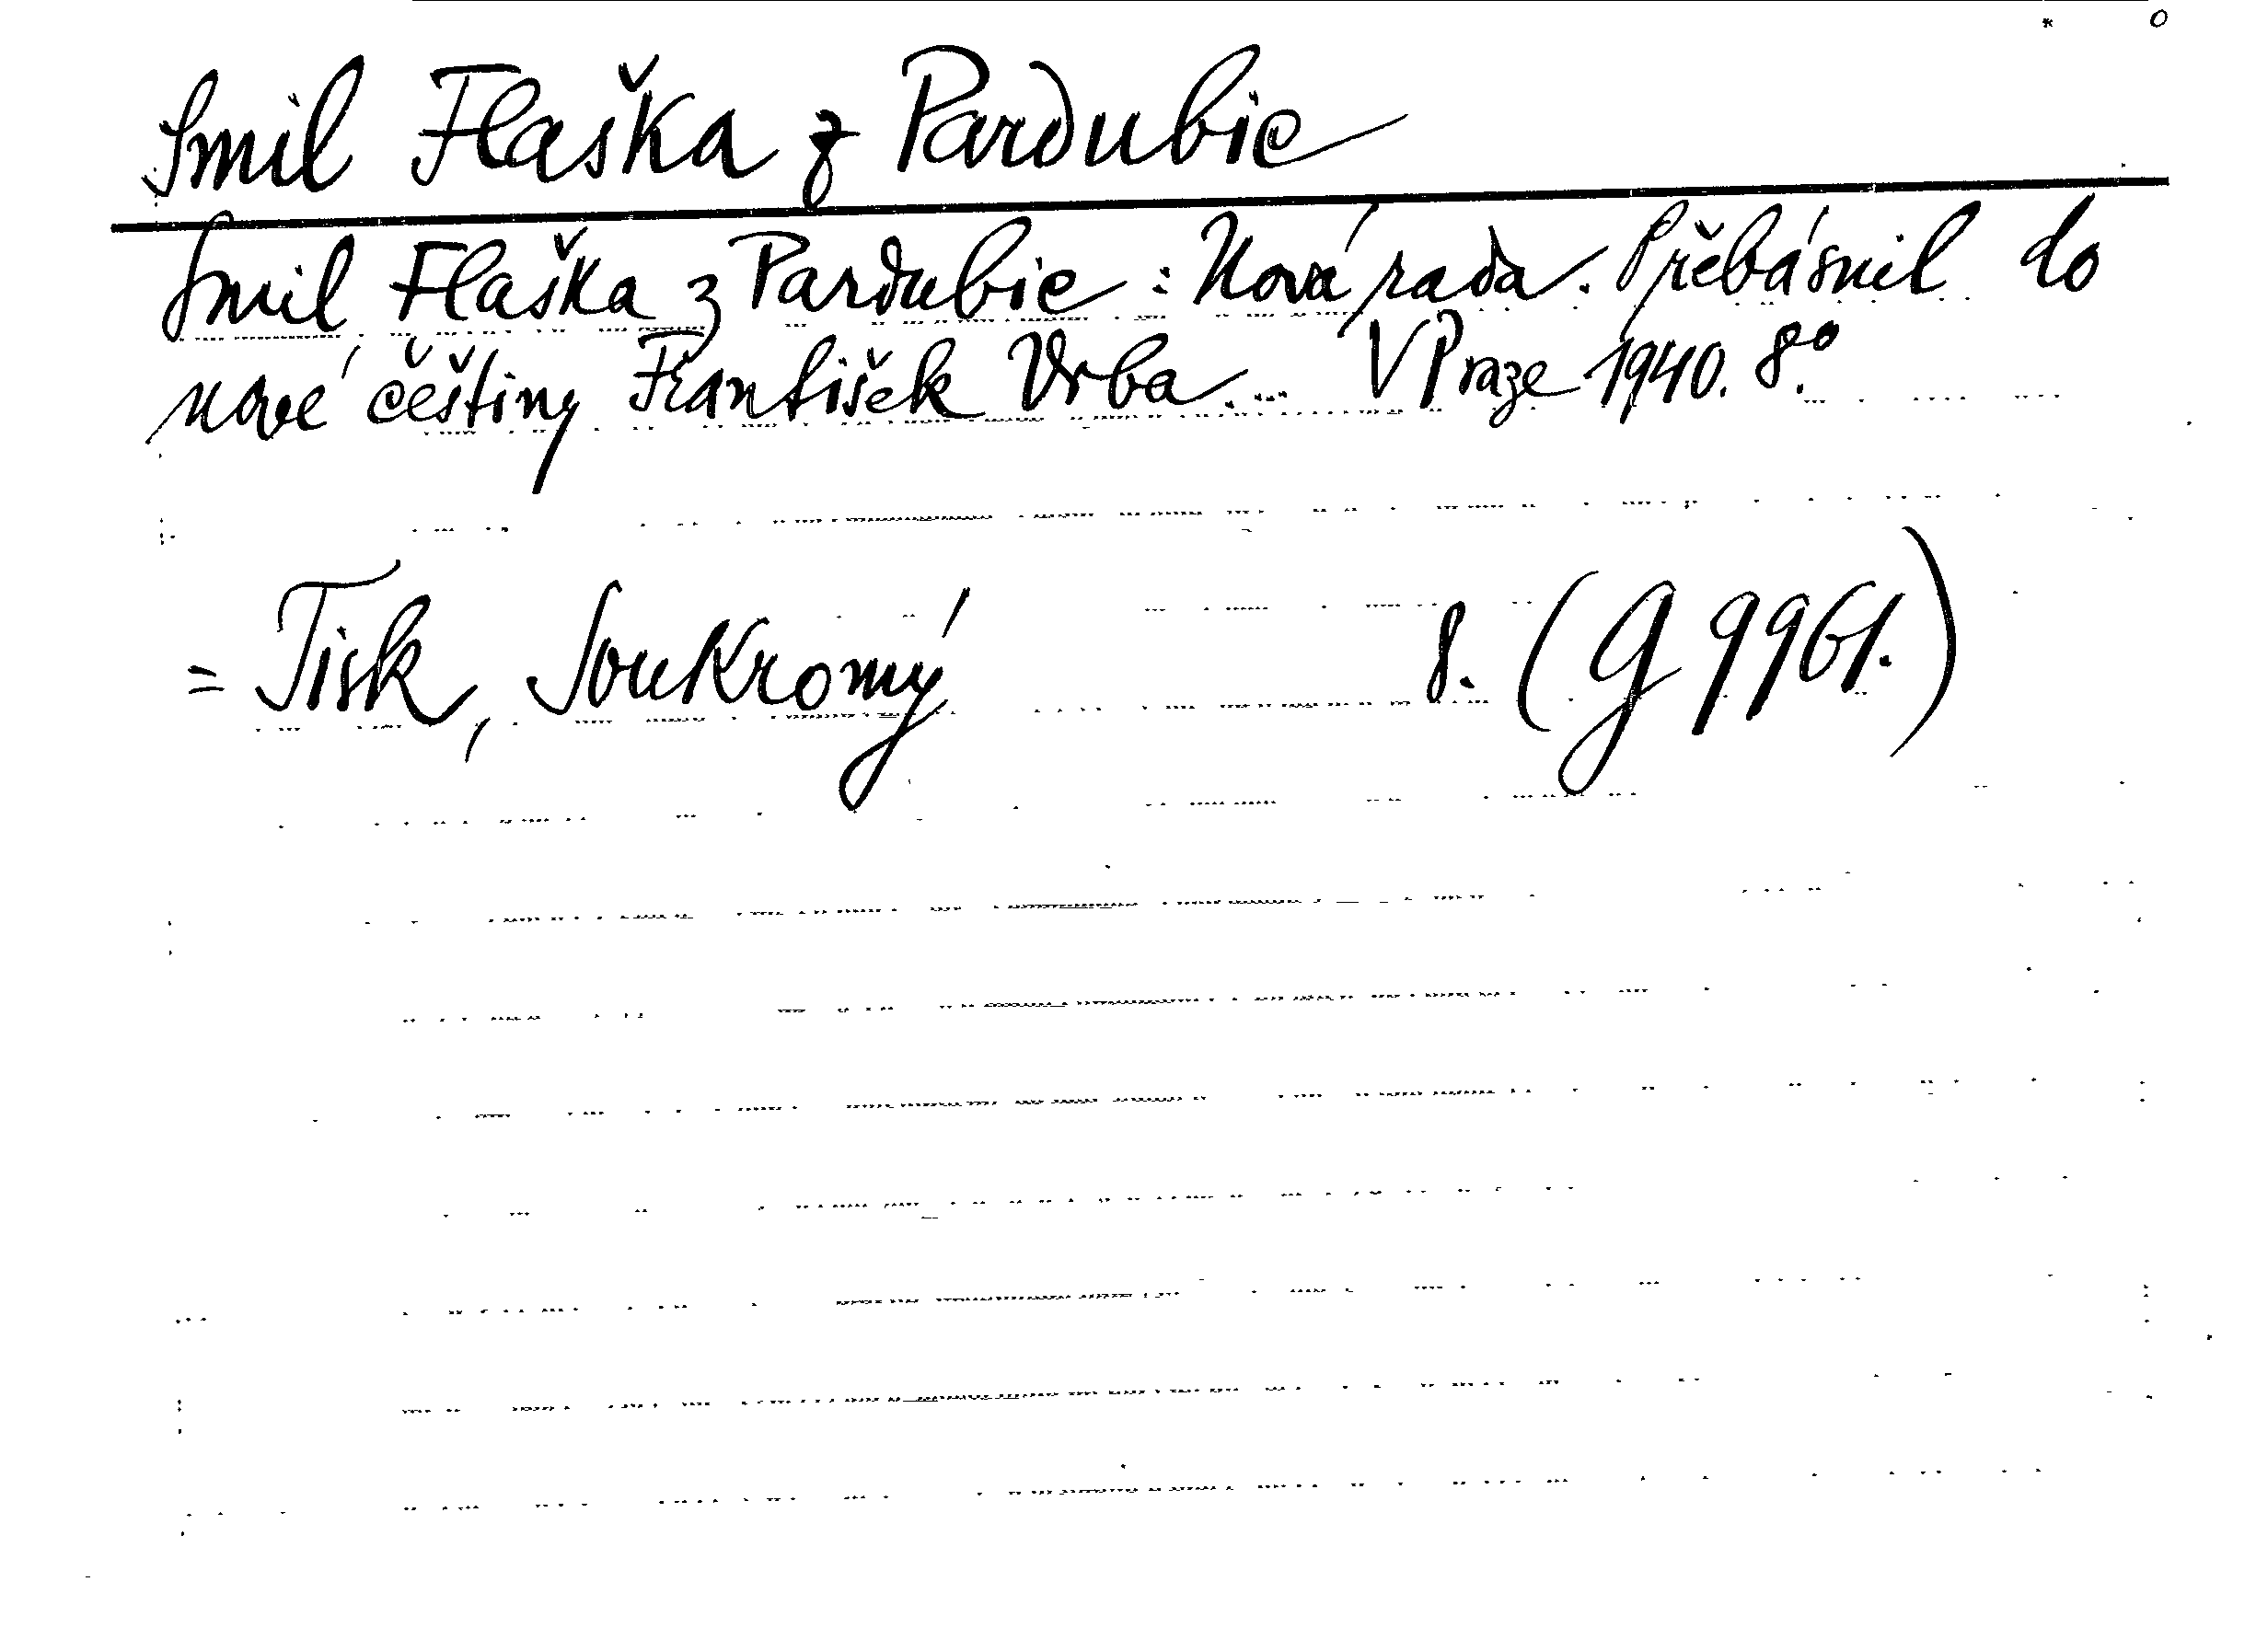 Smil Flaška z Pardubic
Smil Flaška z Pardubic : Nová rada. Přebásnil do
nové češtiny František Vrba... V Praze 1940. 8.°
= Tisk, Soukromý 8. (G 9961.)